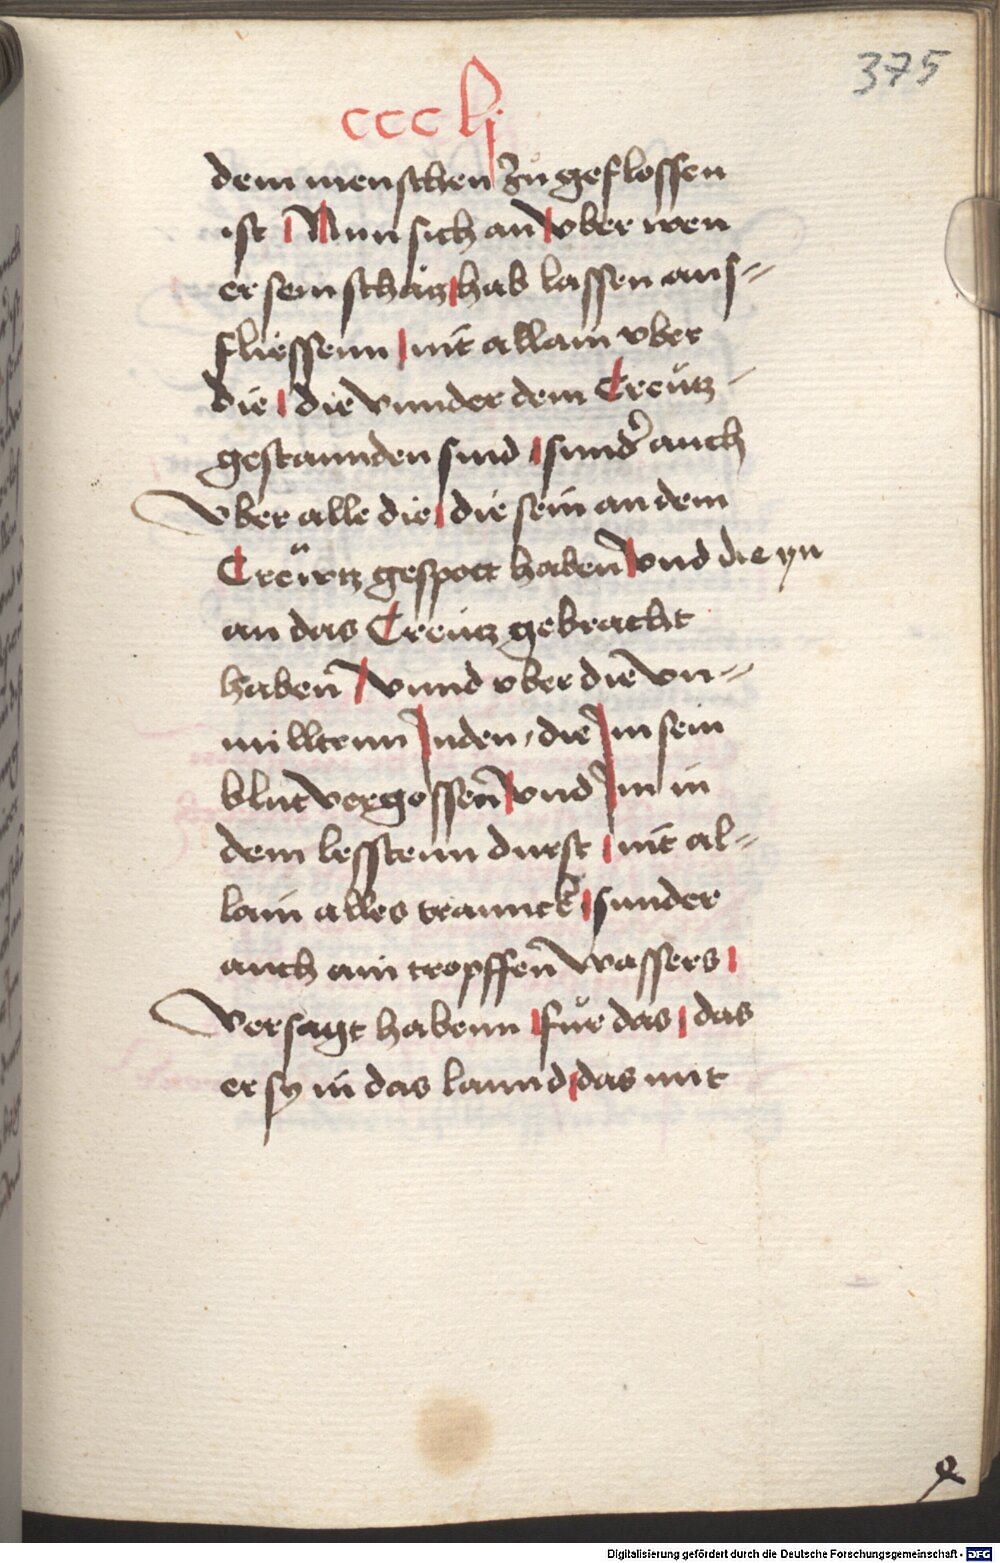 375
cccLj
dem menschen zů geflossen
ist Nun sich an vber wen
er sein schatz hab lassen aus=
fliessenn nit allain vber
die die vnnder dem Creütz
gestannden sind sunder auch
Vber alle die die sein an dem
Creütz gespott haben vnd die yn
an das Creutz gebracht
haben̄ vnnd vber die vn=
milltenn Juden, die Jm sein
blut vergossen̄ vnd Jm in
dem lesstenn durst nit al=
lain alles tranncks sunder
auch ain tropffen̄ wassers
Versagt habenn für das das
er sy in das lannd das mit
Digitalisierung gefördert durch die Deutsche Forschungsgemeinschaft - DFG